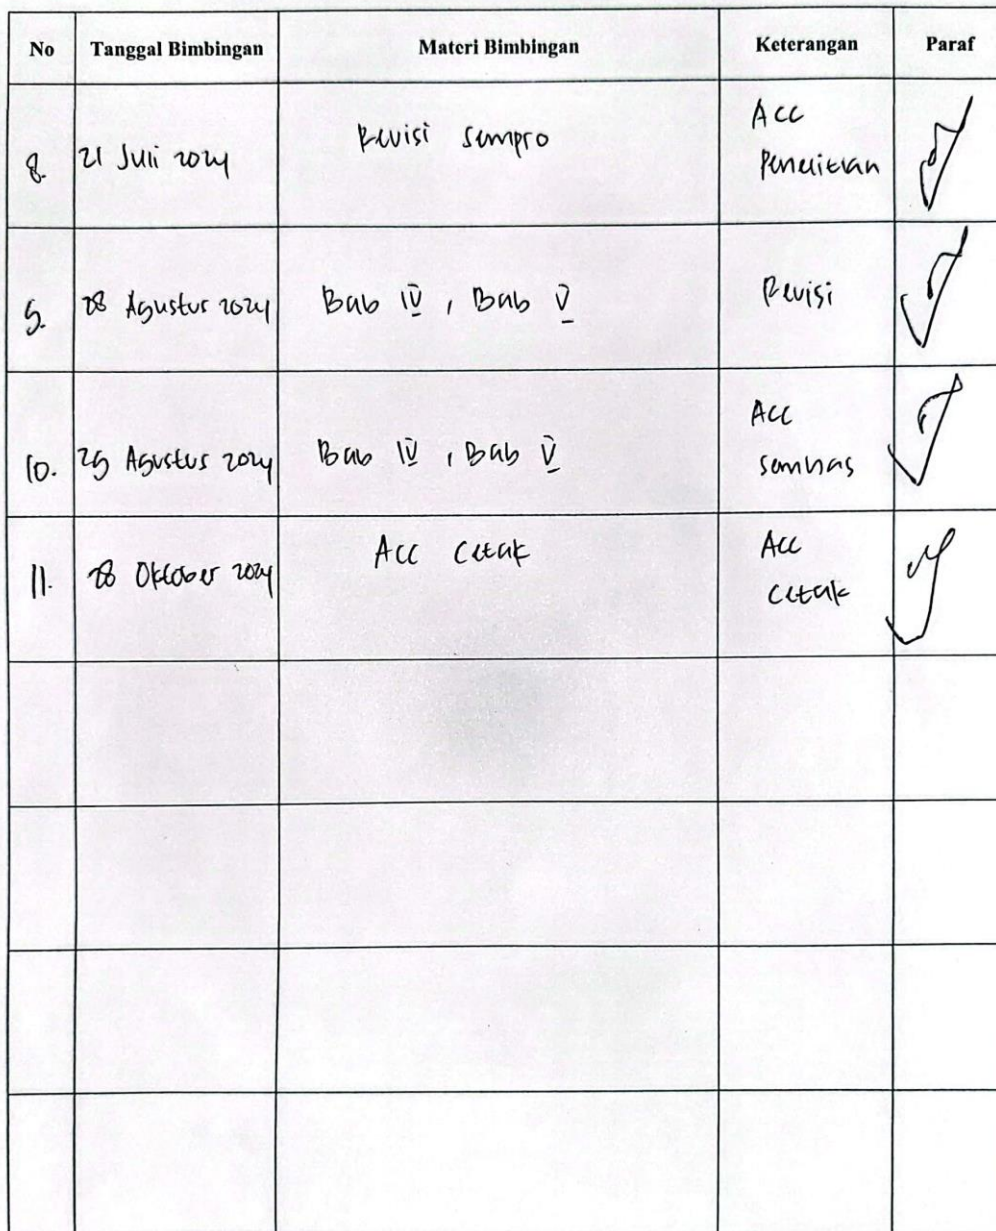 No Tanggal Bimbingan Materi Bimbingan Keterangan Paraf
8. 21 Juli 2024 Revisi Sempro Acc
Penelitian
9. 28 Agustus 2024 Bab IV , Bab V Revisi
10. 29 Agustus 2024 Bab IV , Bab V Acc
semhas
11. 28 Oktober 2024 Acc Cetak Acc
Cetak